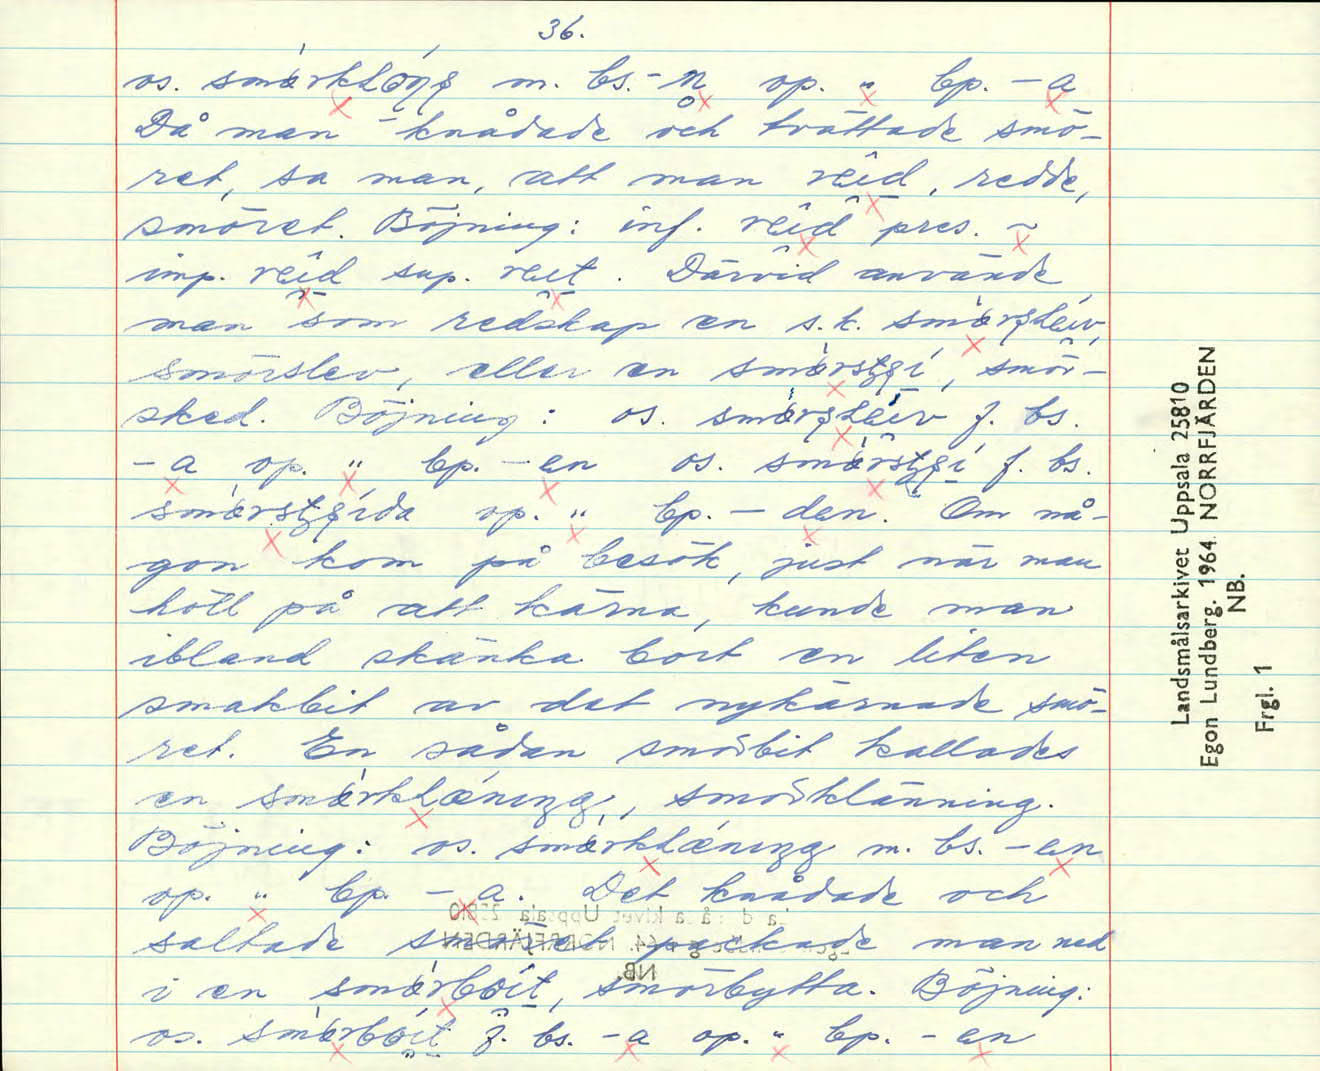 36.
os. smǝrkLøŋg m. bs. -n op. " bp. - a
Då man knådade och tvättade smö-
ret, sa man, att man reid, redde,
smöret. Böjning: inf. reid pres. ~
imp. reid sup. reit. Därvid använde
man som redskap en s.k. smǝrsLeiv,
smörslev, eller en smörsked. Böjning: os. smǝrsLeiv f. bs.
- a op. " bp. - en os. f. bs.
op. " bp. - den. Om nå-
gon kom på besök, just när man
höll på att kärna, kunde man
ibland skänka bort en liten
smakbit av det nykärnade smö-
ret. En sådan smörbit kallades
en smǝrkLæning, smörklänning.
Böjning: os. smǝrkLæning m. bs. - en
op. " bp. - a. Det knådade och
saltade smöret packade man ned
i en smǝrbøit, smörbytta. Böjning:
os. smǝrbøit f. bs. - a op. " bp. - en
Landsmålsarkivet Uppsala 25810
Egon Lundberg. 1964. NORRFJÄRDEN
NB.
Frgl. 1